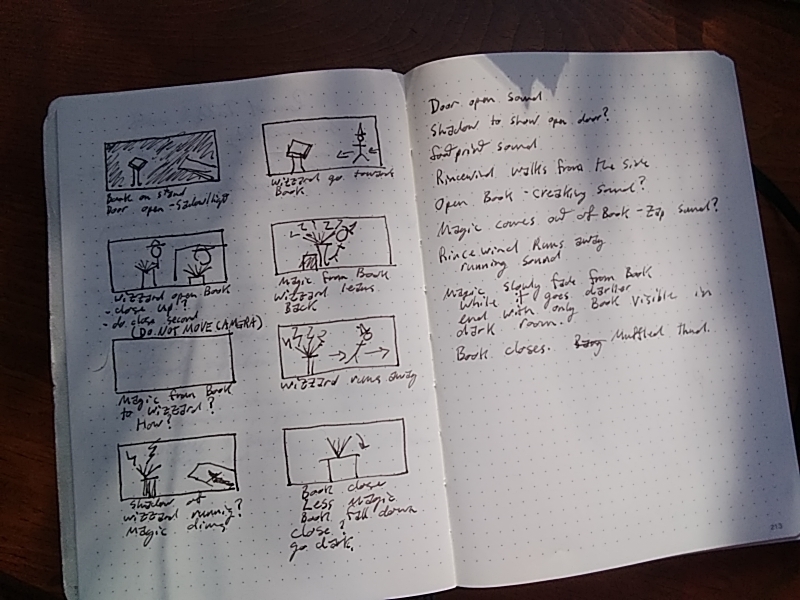 Book on stand
Door open - Shadow/light
Wizzard go towards
Book
wizzard open Book
- close up?
- do close second
(DO NOT MOVE CAMERA)
Magic from Book
Wizzard leans
Back
Magic from Book
to wizzard?
How?
Wizzard runs away
Shadow of
wizzard running?
Magic dims
Book close
Less Magic
Book fall down
close?
go dark.
Door open sound
Shadow to show open door?
footprint sound
Rincewind walks from the side
Open Book - creaking sound?
Magic comes out of Book - Zap sound?
Rincewind Runs away
running sound
Magic slowly fade from Book
While it goes darker
end with only Book visible in
dark room.
Book closes. Bang Muffled Thud.
213